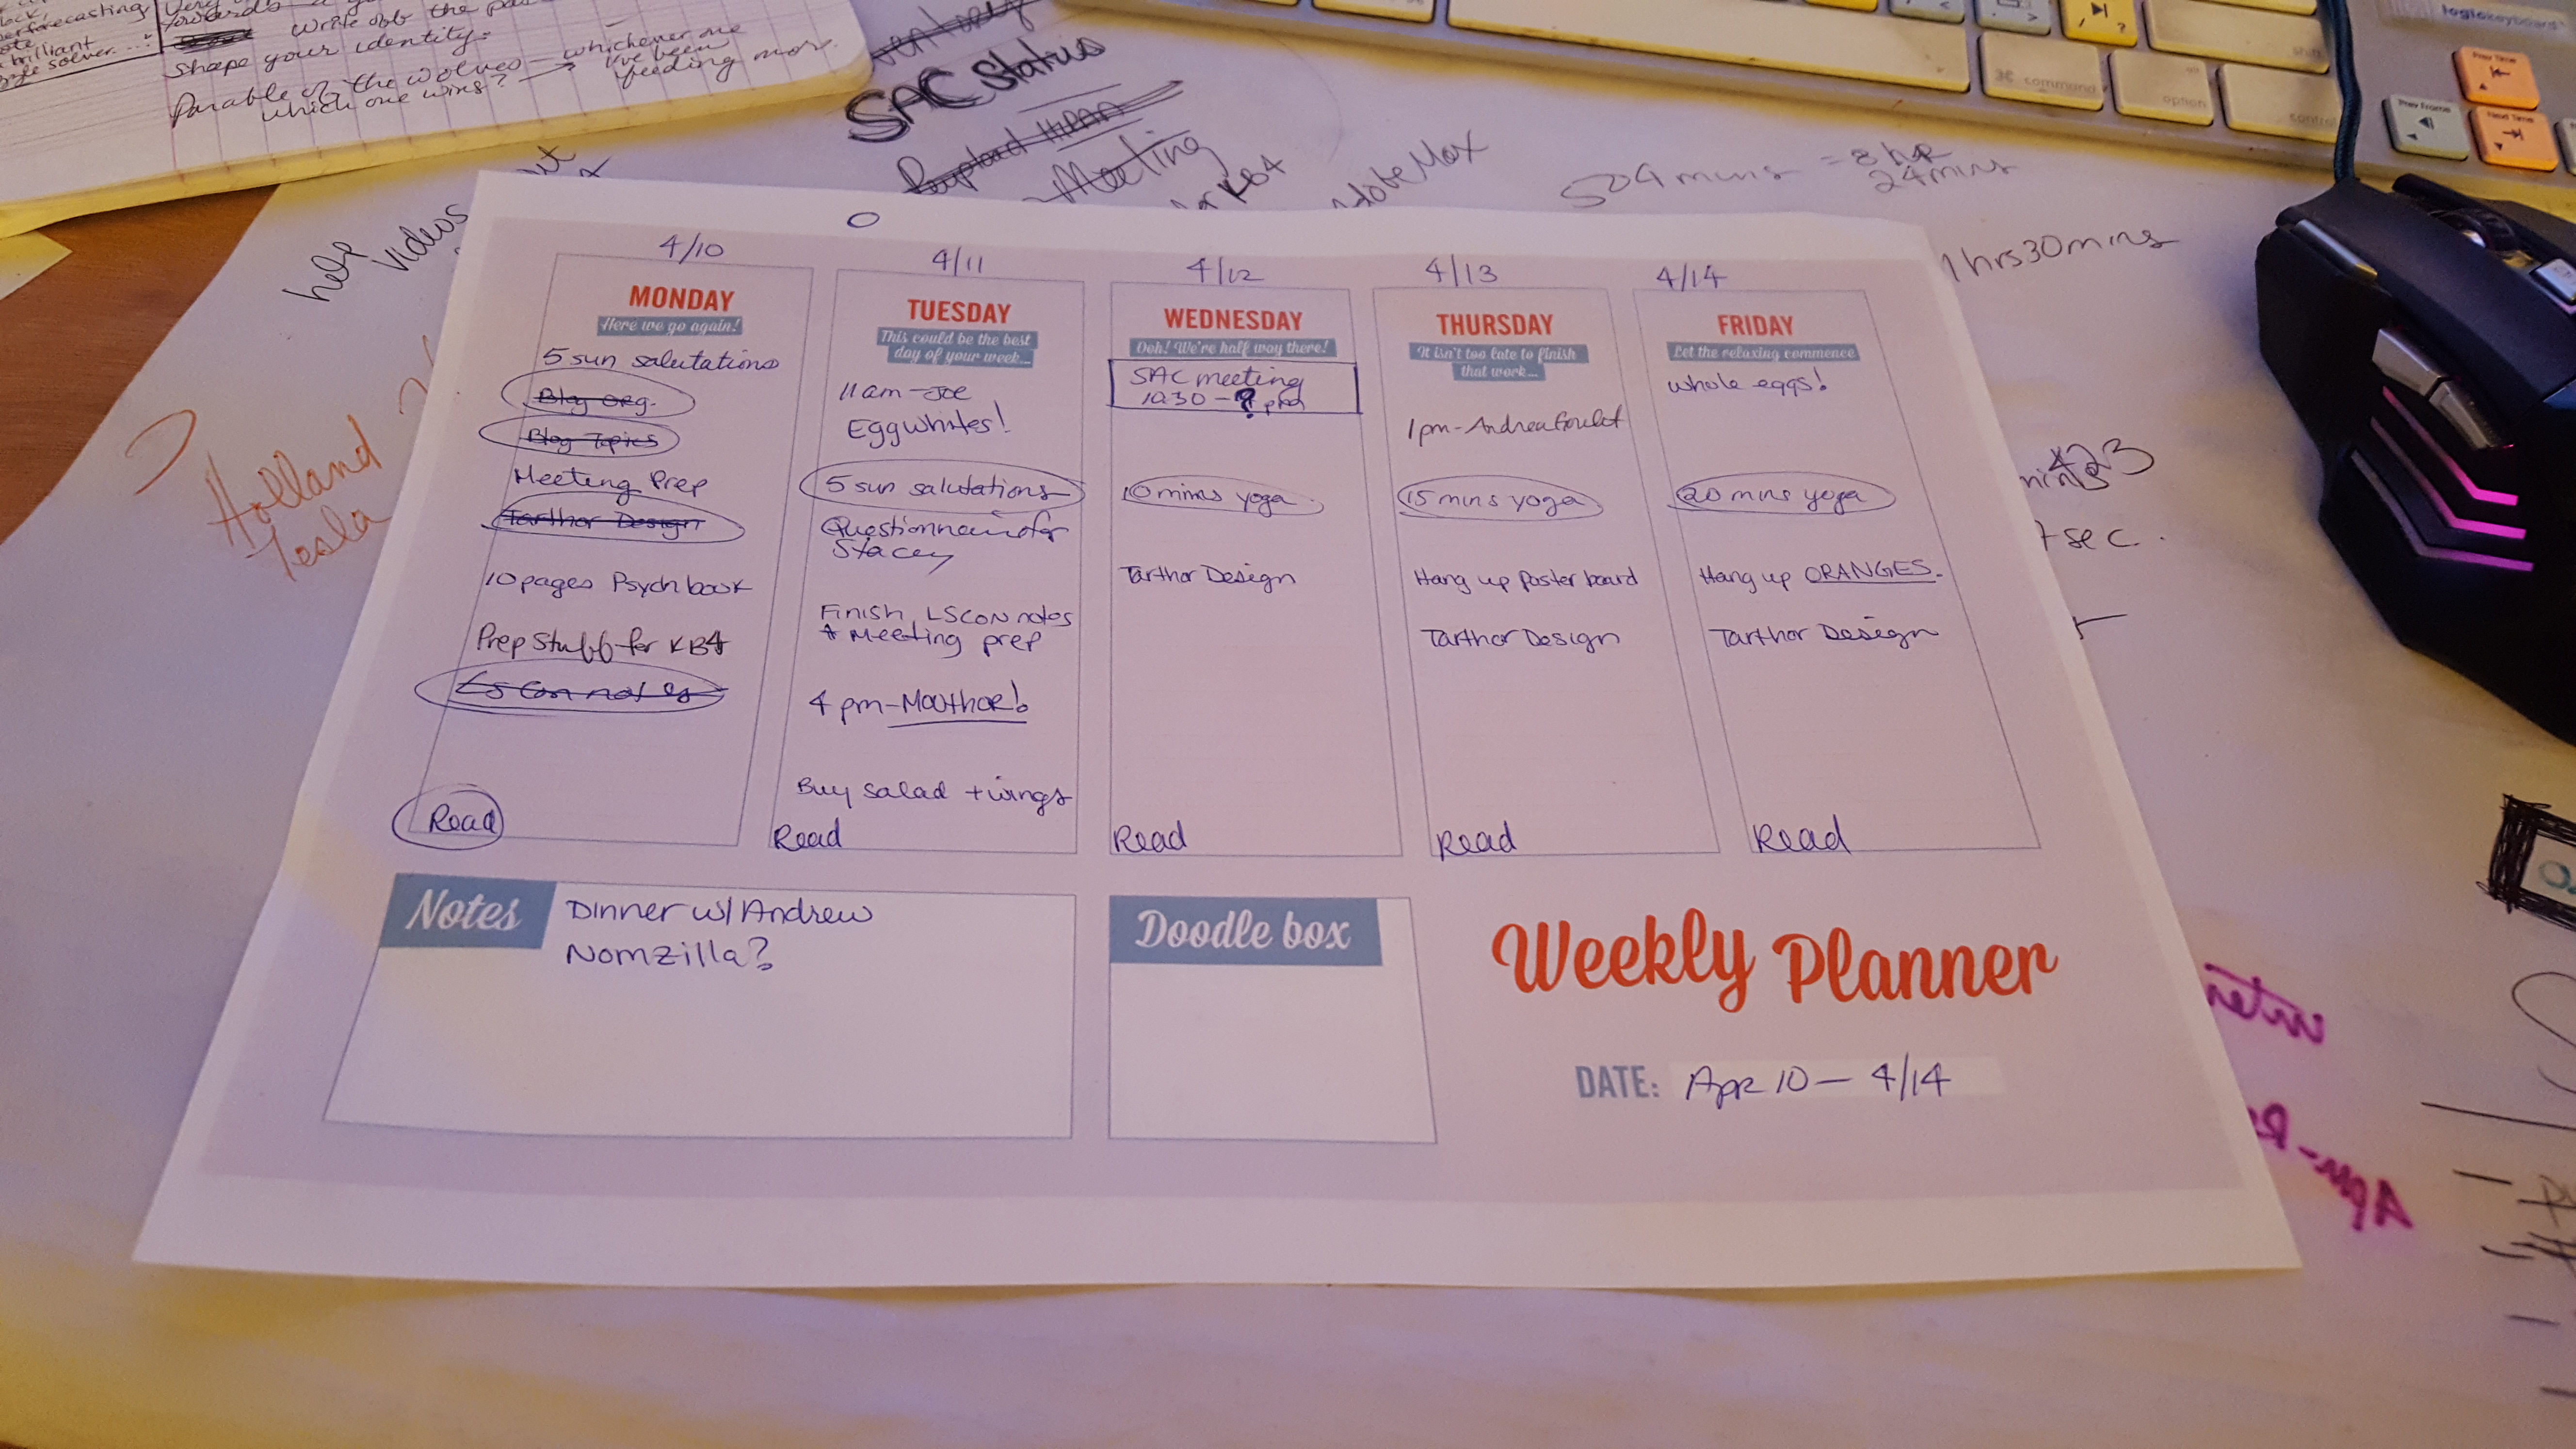 your identity.
shape
Parable of the wolves — whichever one
which one wins? → I've been
feeding more.
SAC Status
Reupload HIPAA
Meeting
Adobe Max
504 mins = 8 hr
24 mins
1 hrs 30 mins
help
videos
Holland
Tesla
logickeyboard
shift
command
option
control
Prev Time
Prev Frame
Next Time
4/10
4/11
4/12
4/13
4/14
MONDAY
Here we go again!
5 sun salutations
Blog org.
Blog Topics
Meeting Prep
Tarthor Design
10 pages Psych book
Prep Stuff for KB4
LSCon notes
Read
TUESDAY
This could be the best
day of your week...
11am - Joe
Egg whites!
5 sun salutations
Questionnaire for
Stacey
Finish LSCON notes
+ Meeting prep
4 pm - Mouthor!
Buy salad + wings
Read
WEDNESDAY
Ooh! We're half way there!
SAC meeting
10:30 - ? pm
10 mins yoga
Tarthor Design
Read
THURSDAY
It isn't too late to finish
that work...
1pm - Andrea Goulet
15 mins yoga
Hang up Poster board
Tarthor Design
Read
FRIDAY
Let the relaxing commence
whole eggs!
20 mins yoga
Hang up ORANGES.
Tarthor Design
Read
Notes
Dinner w/ Andrew
Nomzilla?
Doodle box
Weekly Planner
DATE: Apr 10 — 4/14